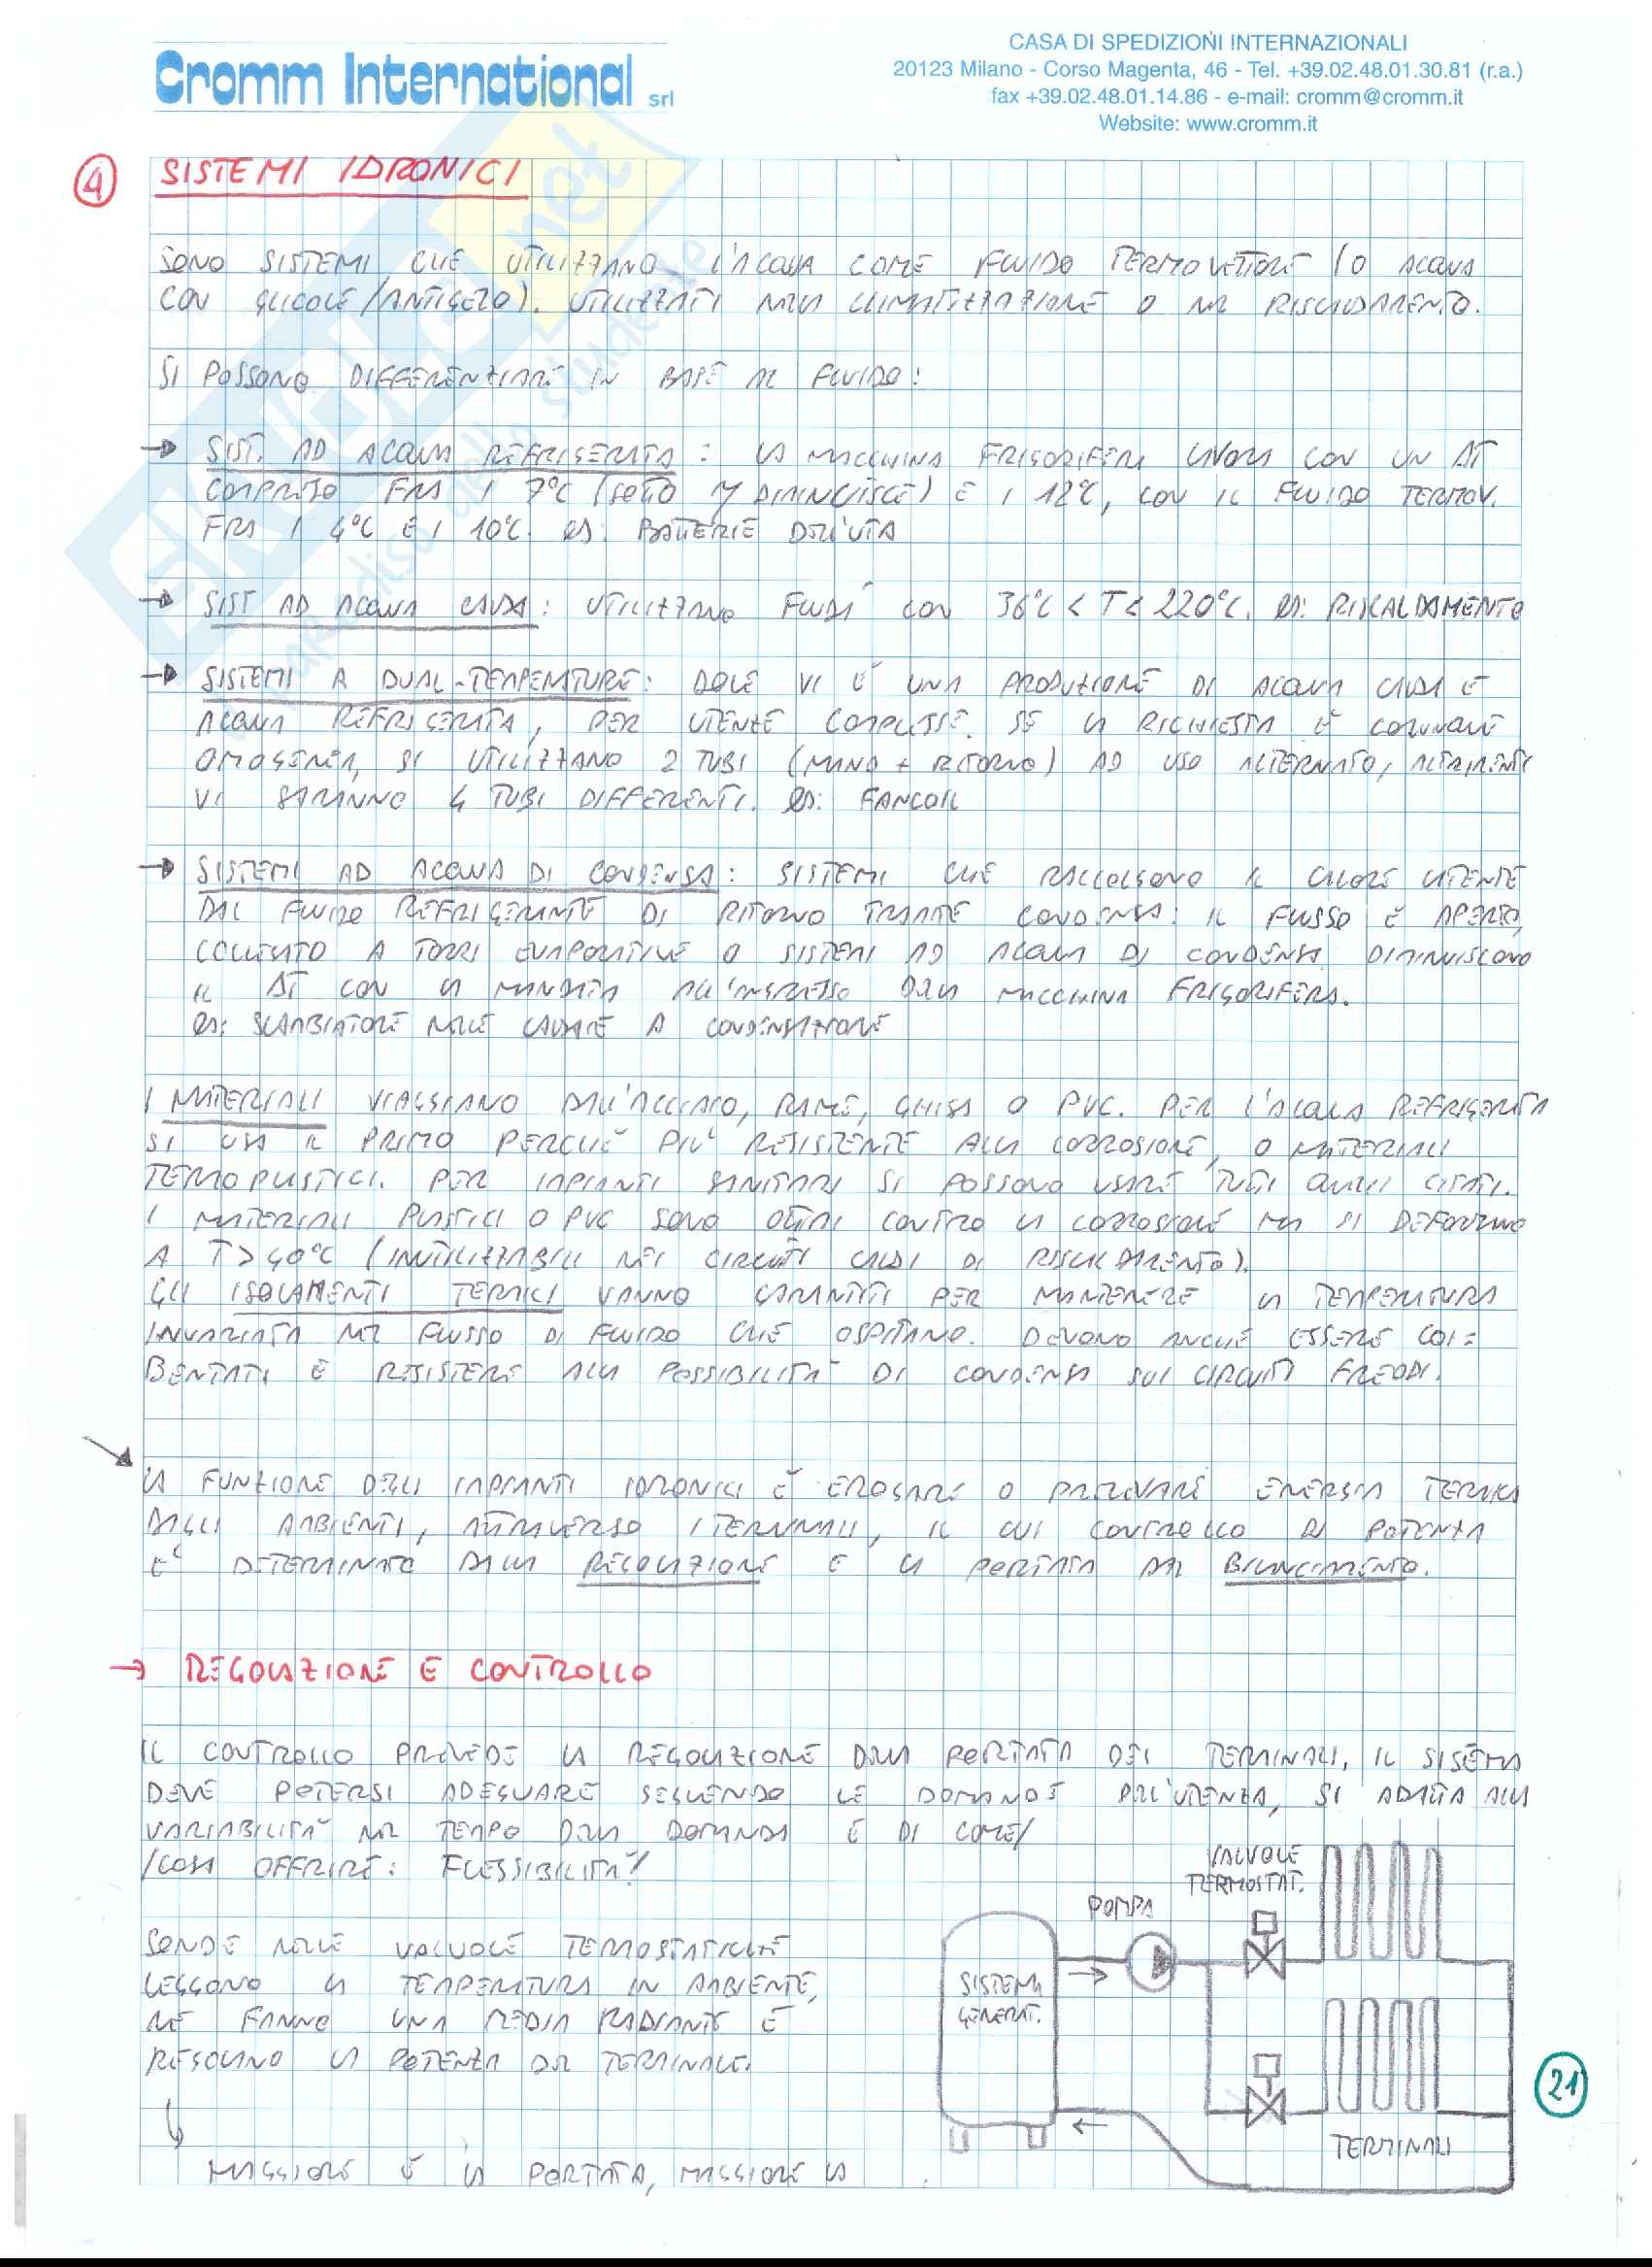 Cromm International srl
CASA DI SPEDIZIONI INTERNAZIONALI
20123 Milano - Corso Magenta, 46 - Tel. +39.02.48.01.30.81 (r.a.)
fax +39.02.48.01.14.86 - e-mail: cromm@cromm.it
Website: www.cromm.it
4 SISTEMI IDRONICI
SONO SISTEMI CHE UTILIZZANO L'ACQUA COME FLUIDO TERMOVETTORE (O ACQUA
CON GLICOLE/ANTIGELO). UTILIZZATI NELLA CLIMATIZZAZIONE O NEL RISCALDAMENTO.
SI POSSONO DIFFERENZIARE IN BASE AL FLUIDO:
→ SIST. AD ACQUA REFRIGERATA: LA MACCHINA FRIGORIFERA LAVORA CON UN ΔT
COMPRESO FRA I 7°C (SOTTO η DIMINUISCE) E I 12°C, CON IL FLUIDO TERMOV.
FRA I 4°C E I 10°C. ES: BATTERIE DELL'UTA
→ SIST AD ACQUA CALDA: UTILIZZANO FLUIDI CON 36°C < T < 220°C. ES: RISCALDAMENTO
→ SISTEMI A DUAL-TEMPERATURE: DOVE VI È UNA PRODUZIONE DI ACQUA CALDA E
ACQUA REFRIGERATA, PER UTENZE COMPLESSE. SE LA RICHIESTA È COMUNQUE
OMOGENEA, SI UTILIZZANO 2 TUBI (MAND + RITORNO) AD USO ALTERNATO, ALTRIMENTI
VI SARANNO 4 TUBI DIFFERENTI. ES: FANCOIL
→ SISTEMI AD ACQUA DI CONDENSA: SISTEMI CHE RACCOLGONO IL CALORE LATENTE
DAL FLUIDO REFRIGERANTE DI RITORNO TRAMITE CONDENSA: IL FLUSSO È APERTO,
COLLEGATO A TORRI EVAPORATIVE O SISTEMI AD ACQUA DI CONDENSA. DIMINUISCONO
IL ΔT CON LA MANDATA ALL'INGRESSO DELLA MACCHINA FRIGORIFERA.
ES: SCAMBIATORE NELLE CALDAIE A CONDENSAZIONE
I MATERIALI VIAGGIANO DALL'ACCIAIO, RAME, GHISA O PVC. PER L'ACQUA REFRIGERATA
SI USA IL PRIMO PERCHÈ PIÙ RESISTENTE ALLA CORROSIONE, O MATERIALI
TERMOPLASTICI. PER IMPIANTI SANITARI SI POSSONO USARE TUTTI QUELLI CITATI.
I MATERIALI PLASTICI O PVC SONO OTTIMI CONTRO LA CORROSIONE MA SI DEFORMANO
A T > 40°C (INUTILIZZABILI NEI CIRCUITI CALDI DI RISCALDAMENTO).
GLI ISOLAMENTI TERMICI VANNO GARANTITI PER MANTENERE LA TEMPERATURA
INVARIATA NEL FLUSSO DI FLUIDO CHE OSPITANO. DEVONO ANCHE ESSERE COI=
BENTATI E RESISTERE ALLA POSSIBILITÀ DI CONDENSA SUI CIRCUITI FREDDI.
LA FUNZIONE DEGLI IMPIANTI IDRONICI È EROGARE O PRELEVARE ENERGIA TERMICA
DAGLI AMBIENTI, ATTRAVERSO I TERMINALI, IL CUI CONTROLLO DI POTENZA
È DETERMINATO DALLA REGOLAZIONE E LA PORTATA DAL BILANCIAMENTO.
→ REGOLAZIONE E CONTROLLO
IL CONTROLLO PREVEDE LA REGOLAZIONE DELLA PORTATA DEI TERMINALI, IL SISTEMA
DEVE POTERSI ADEGUARE SEGUENDO LE DOMANDE DELL'UTENZA, SI ADATTA ALLA
VARIABILITÀ NEL TEMPO DELLA DOMANDA E DI COME/
/COSA OFFRIRE: FLESSIBILITÀ!
SONDE NELLE VALVOLE TERMOSTATICHE
LEGGONO LA TEMPERATURA IN AMBIENTE,
NE FANNO UNA MEDIA RADIANTE E
REGOLANO LA POTENZA DEL TERMINALE.
MAGGIORE È LA PORTATA, MAGGIORE LA
VALVOLE
TERMOSTAT.
POMPA
SISTEMA
GENERAT.
TERMINALI
21